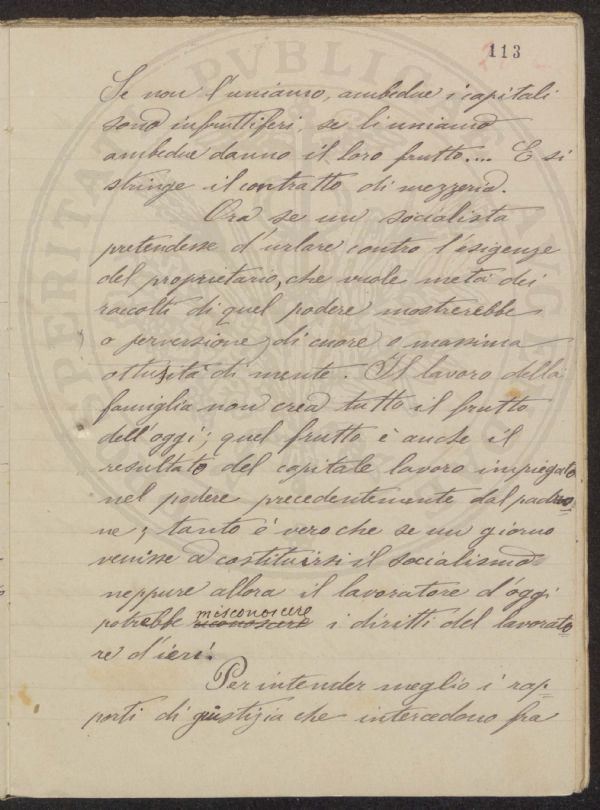 113
Se non l'uniamo, ambedue i capitali
sono infruttiferi, se li uniamo
ambedue danno il loro frutto.... E si
stringe il contratto di mezzeria.
Ora se un socialista
pretendesse d'urlare contro l'esigenze
del proprietario, che vuole metà dei
raccolti di quel podere mostrerebbe
o perversione di cuore o massima
ottusità di mente. Il lavoro della
famiglia non crea tutto il frutto
dell'oggi; quel frutto è anche il
resultato del capitale lavoro impiegato
nel podere precedentemente dal padro
ne; tanto è vero che se un giorno
venisse a costituirsi il socialismo
neppure allora il lavoratore d'oggi
potrebbe misconoscere i diritti del lavorato
re d'ieri.
Per intender meglio i rap-
porti di giustizia che intercedono fra